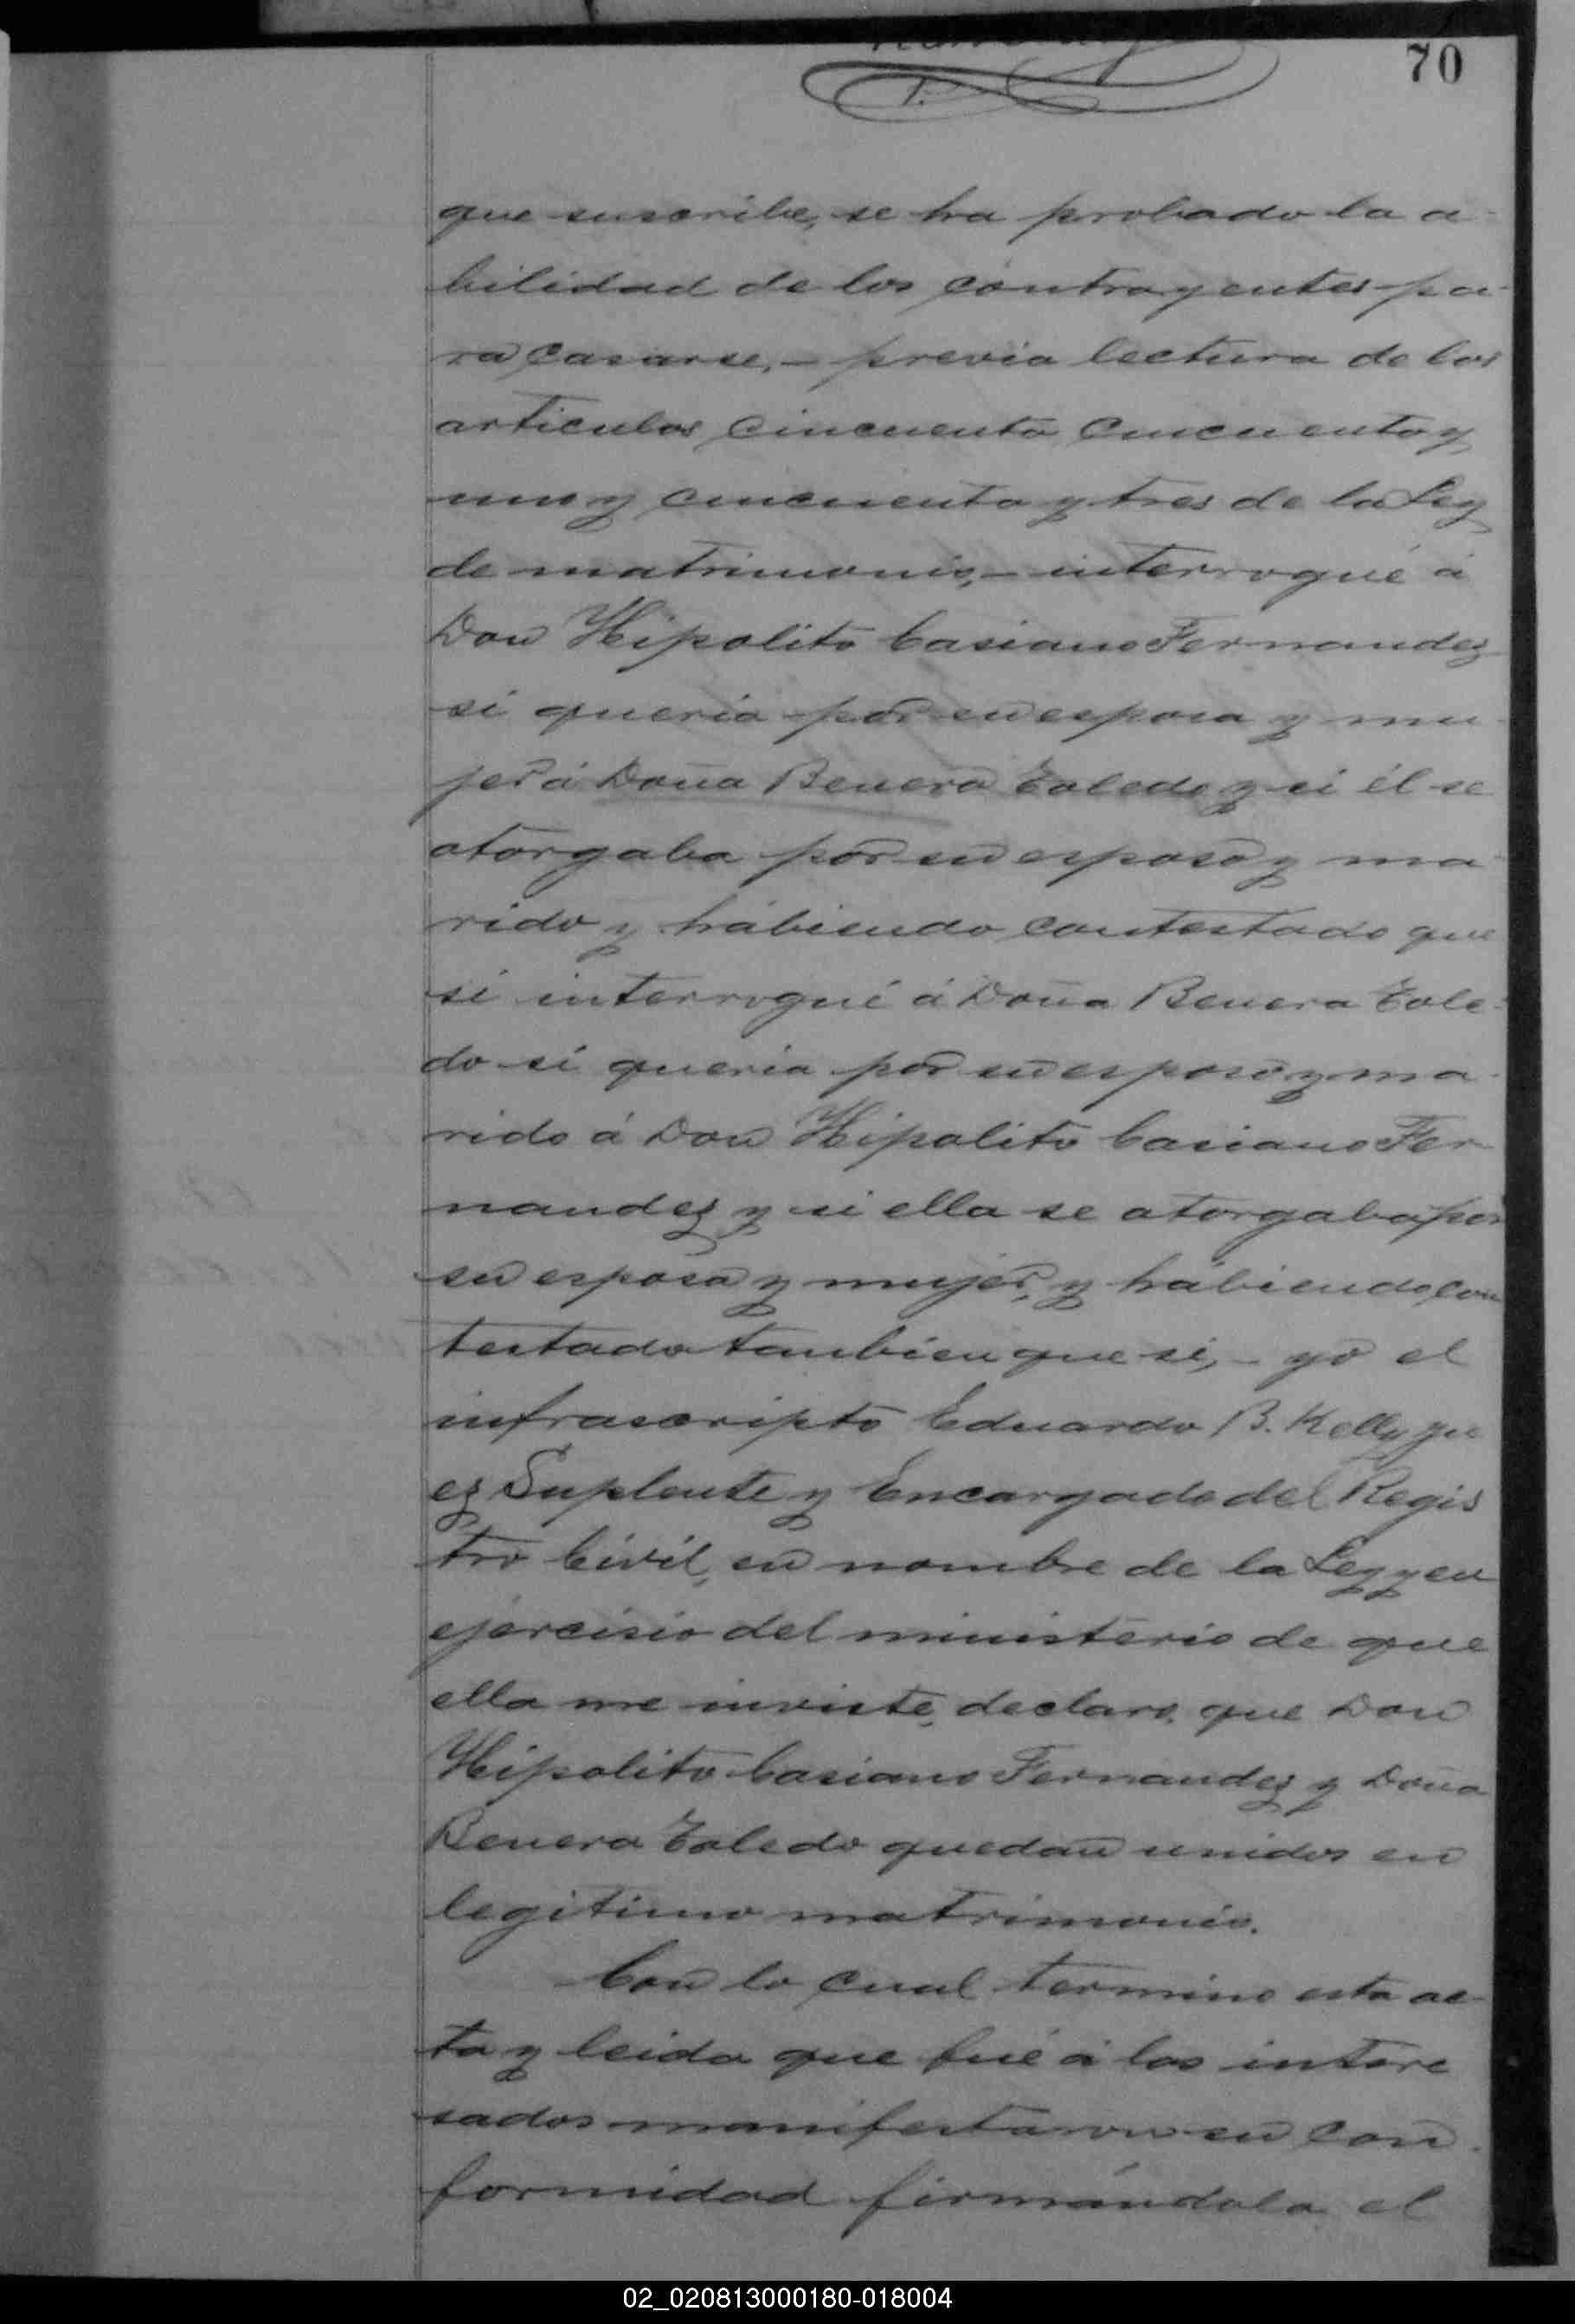 70
que suscribe, se ha probado la a-
bilidad de los contrayentes pa-
ra casarse, - previa lectura de los
articulos cincuenta cincuenta y
uno y cincuenta y tres de la Ley
de matrimonio, - interrogué á
Don Hipolito Casiano Fernandez
si queria por su esposa y mu-
jer á Doña Benera Toledo y si él se
otorgaba por su esposo y ma-
rido y habiendo contestado que
si interrogué á Doña Benera Tole-
do si queria por su esposo y ma-
rido á Don Hipolito Casiano Fer-
nandez y si ella se otorgaba por
su esposa y mujer, y habiendo con
testado tambien que si, - yo el
infrascripto Eduardo B. Kelly Ju
ez Suplente y Encargado del Regis
tro Civil, en nombre de la Ley y en
ejercisio del ministerio de que
ella me inviste, declaro, que Don
Hipolito Casiano Fernandez y Doña
Benera Toledo quedan unidos en
legitimo matrimonio.
Con lo cual termino esta ac-
ta y leida que fué á los intere
sados manifestaron su con-
formidad firmándola el
02_020813000180-018004